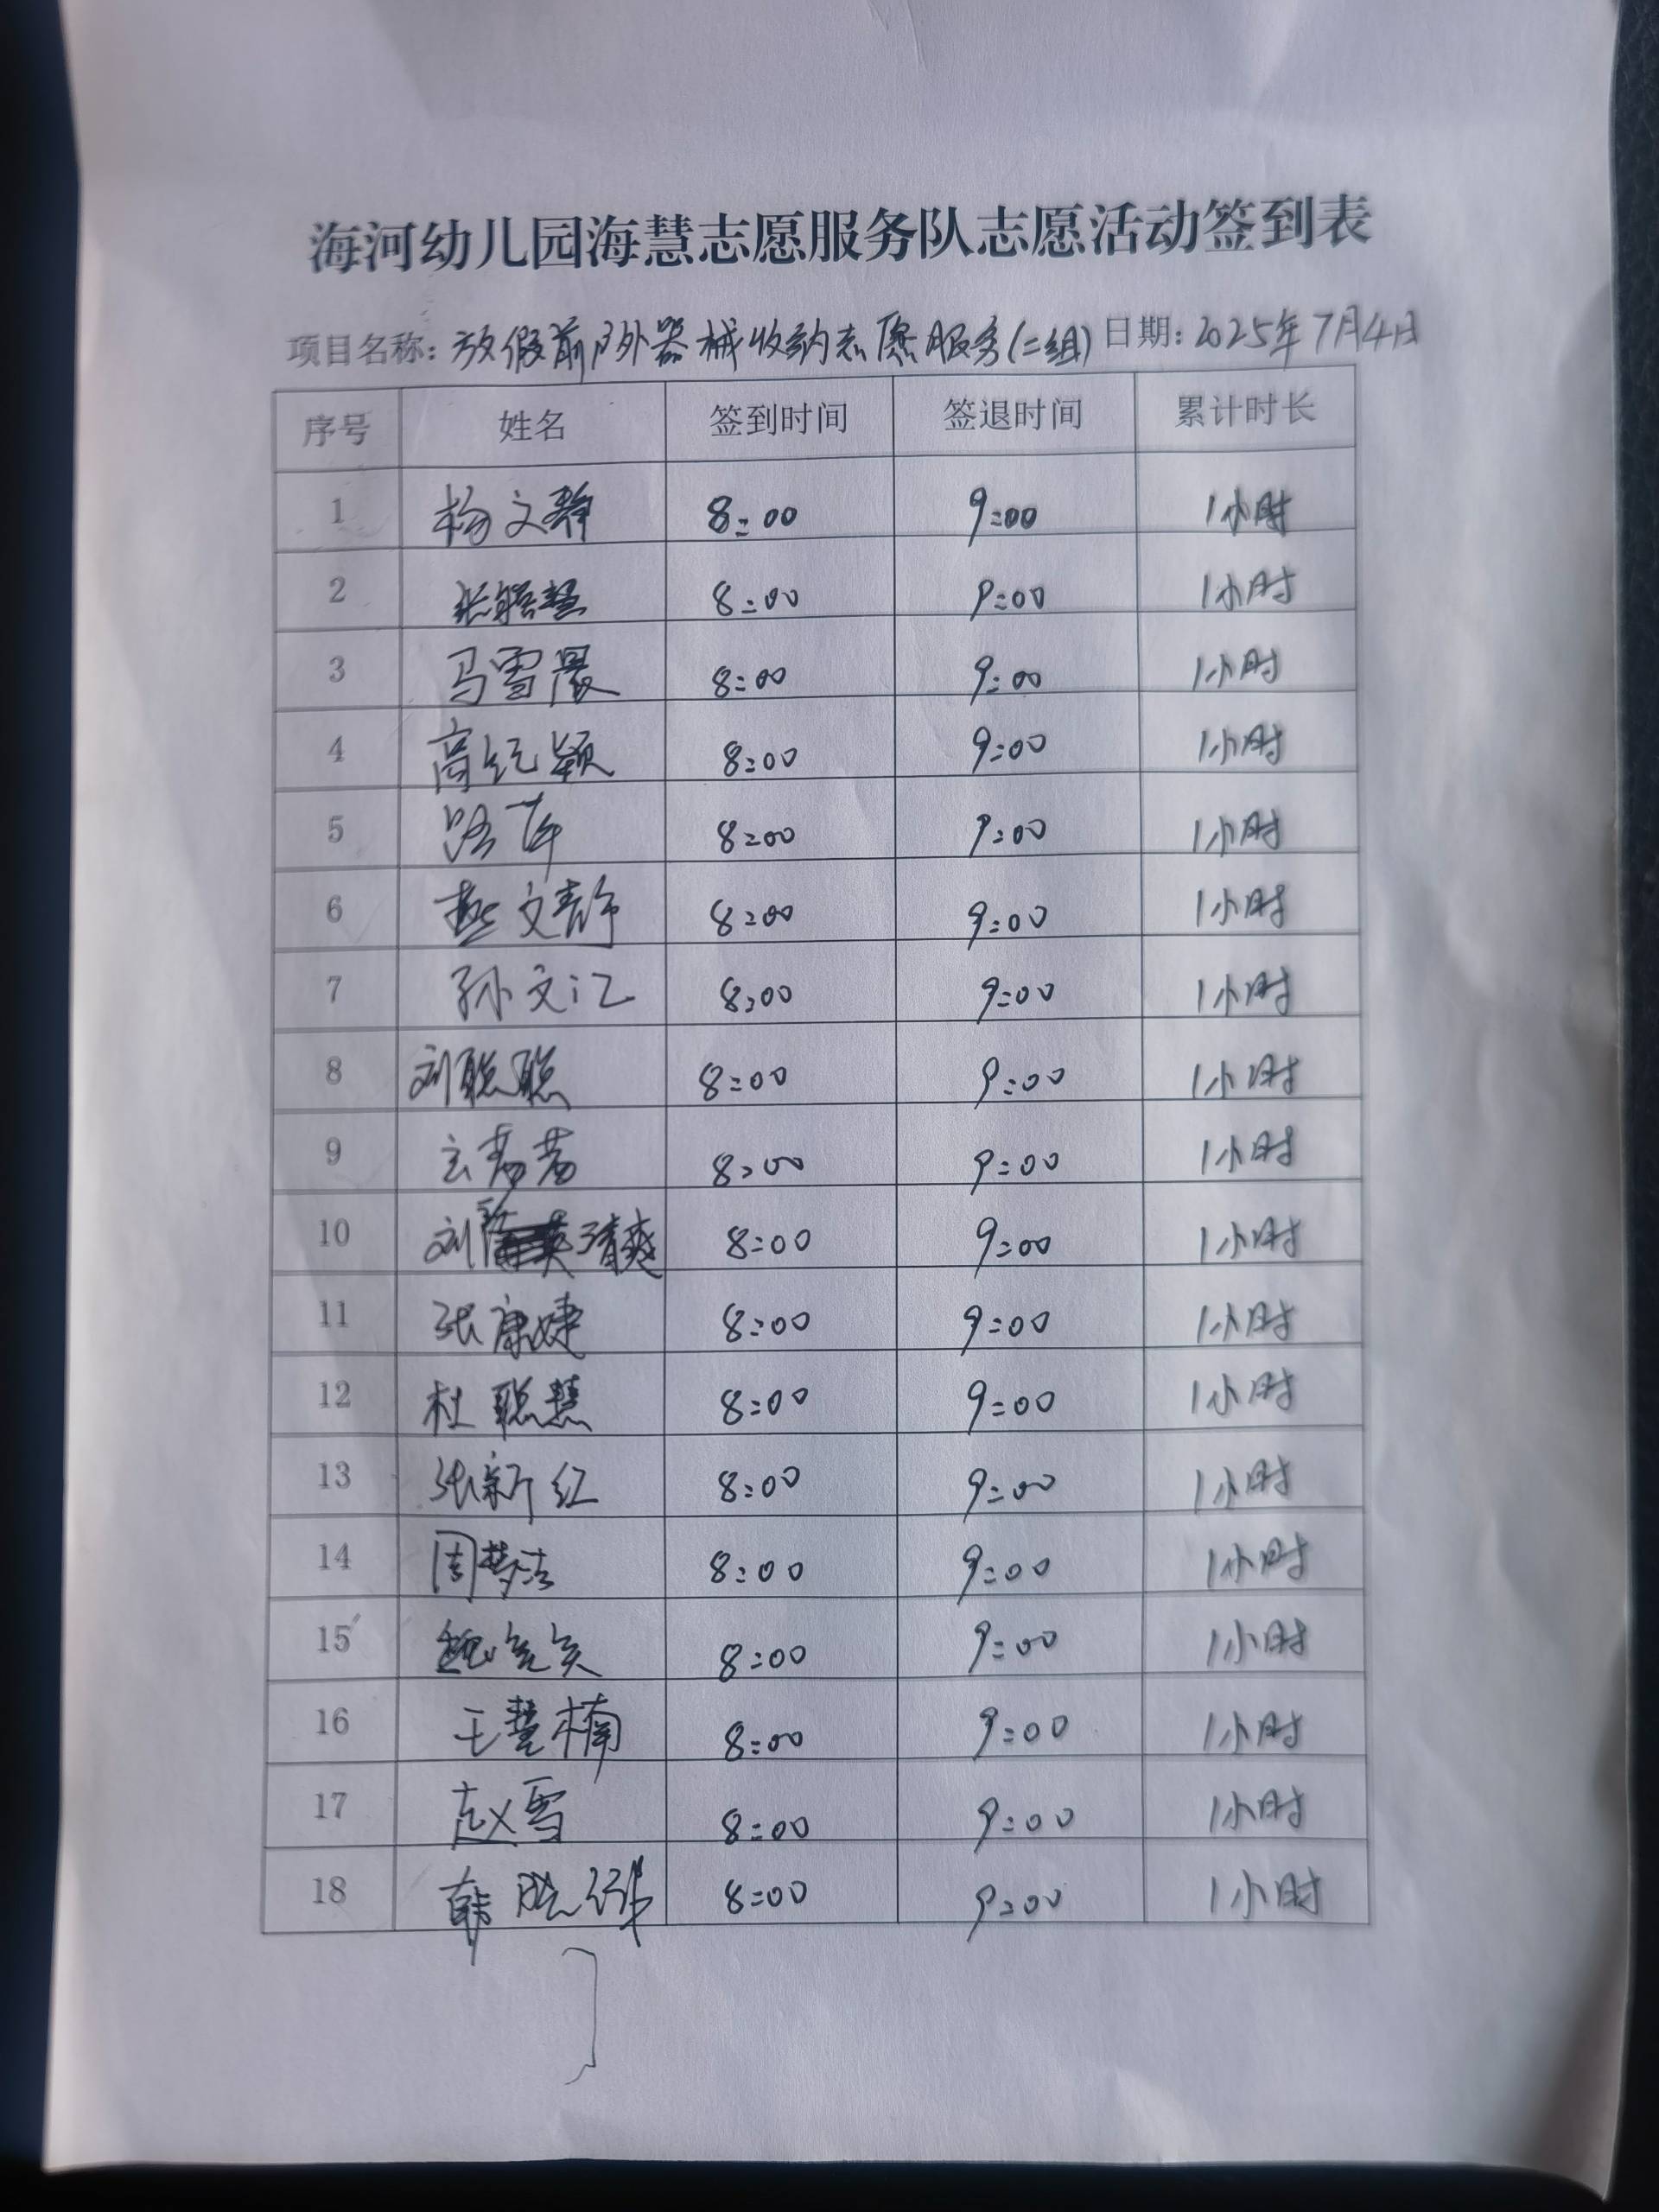 海河幼儿园海慧志愿服务队志愿活动签到表
项目名称：放假前户外器械收纳志愿服务(二组) 日期：2025年7月4日
序号 姓名 签到时间 签退时间 累计时长
1 杨文静 8:00 9:00 1小时
2 8:00 9:00 1小时
3 马雪晨 8:00 9:00 1小时
4 高纪颖 8:00 9:00 1小时
5 8:00 9:00 1小时
6 燕文静 8:00 9:00 1小时
7 孙文汇 8:00 9:00 1小时
8 刘聪聪 8:00 9:00 1小时
9 8:00 9:00 1小时
10 刘清爽 8:00 9:00 1小时
11 张康婕 8:00 9:00 1小时
12 杜聪慧 8:00 9:00 1小时
13 张新红 8:00 9:00 1小时
14 周梦洁 8:00 9:00 1小时
15 8:00 9:00 1小时
16 王慧楠 8:00 9:00 1小时
17 赵雪 8:00 9:00 1小时
18 韩 8:00 9:00 1小时